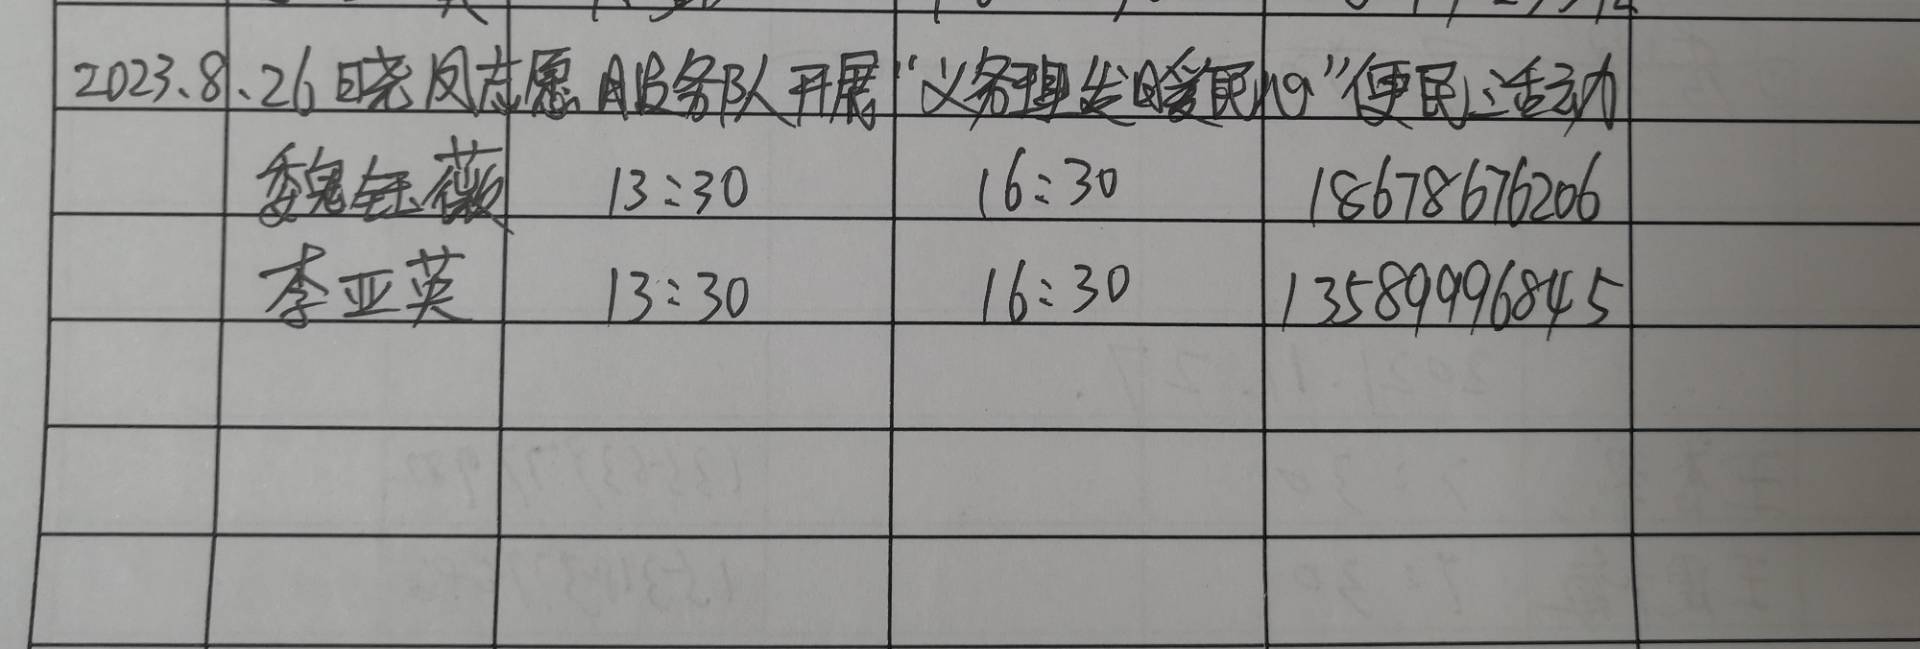 2023.8.26晓凤志愿服务队开展“义务理发暖民心”便民活动
魏钰薇 13:30 16:30 18678676206
李亚英 13:30 16:30 13589996845